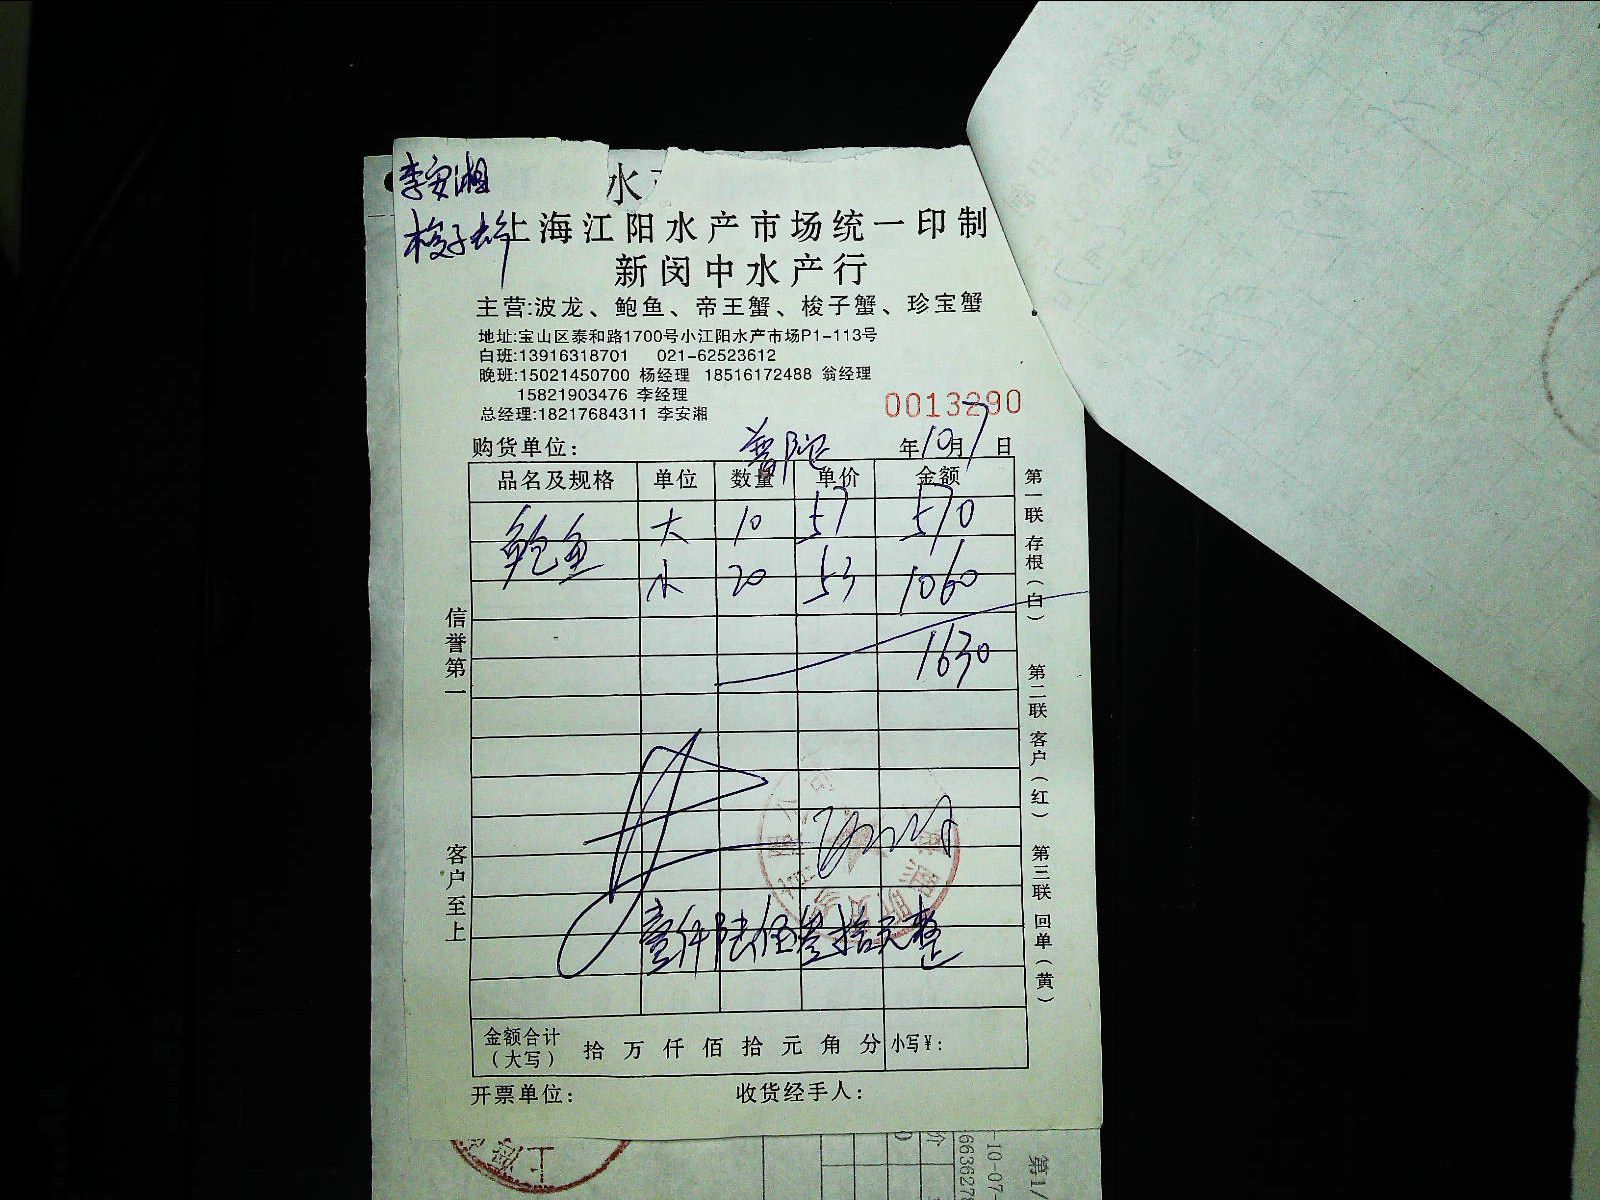 李安湘
梭子蟹
水
上海江阳水产市场统一印制
新闵中水产行
主营:波龙、鲍鱼、帝王蟹、梭子蟹、珍宝蟹
地址:宝山区泰和路1700号小江阳水产市场P1-113号
白班:13916318701 021-62523612
晚班:15021450700 杨经理 18516172488 翁经理
15821903476 李经理
总经理:18217684311 李安湘
0013290
购货单位: 普陀 年10月7日
品名及规格 单位 数量 单价 金额
鲍鱼 大 10 57 570
小 20 53 1060
1630
壹仟陆佰叁拾元整
金额合计
(大写) 拾 万 仟 佰 拾 元 角 分 小写¥:
开票单位: 收货经手人:
信誉第一
客户至上
第一联存根(白)
第二联客户(红)
第三联回单(黄)
上海
价
0
-10-07-
6636276
第1/